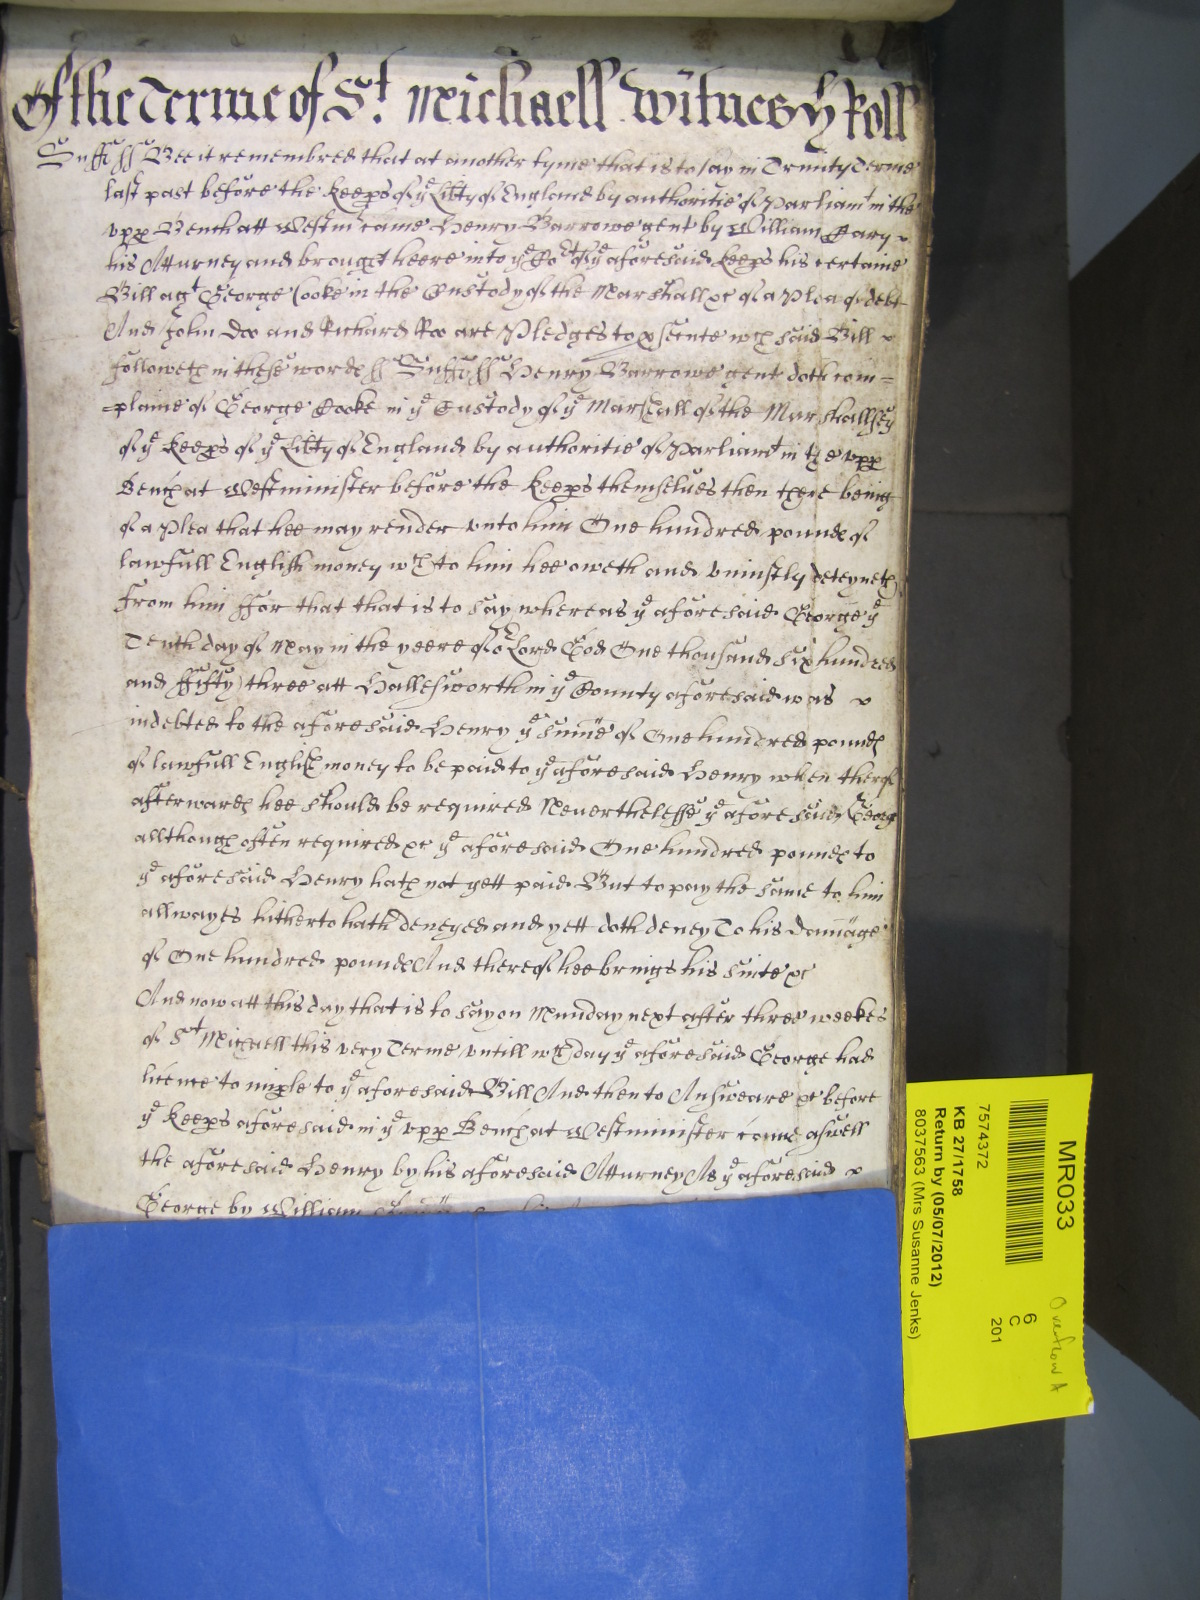 Of the Terme of St. Michaell Witnes H Roll
Suff ss Bee it remembred that at another tyme that is to say in Trinity Terme
last past before the Keeps of ye Libty of England by authoritie of Parliamt in the
vpp Bench att Westm came Henry Barrowe gent by William Cary
his Atturney and brought heere into ye Cort of ye aforesaid Keeps his certaine
Bill agt George Cooke in the Custody of the Marshall &c of a Plea of debt
And John Doo and Richard Roo are Pledges to psecute wch said Bill
followeth in these words ss Suff ss Henry Barrowe gent doth com=
=plaine of George Cooke in ye Custody of ye Marshall of the Marshallsey
of ye Keeps of ye Libty of England by authoritie of Parliamt in the vpp
Bench at Westminister before the Keeps themselues then there being
of a Plea that hee may render vnto him One hundred pounds of
lawfull English money wch to him hee oweth and vniustly deteyneth
from him ffor that that is to say whereas ye aforesaid George ye
Tenth day of May in the yeere of or Lord God One thousand six hundred
and ffifty three att Hallesworth in ye County aforesaid was
indebted to the aforesaid Henry ye summe of One hundred pounds
of lawfull English money to be paid to ye aforesaid Henry when therof
afterwards hee should be required Neuerthelesse ye aforesaid Georg
allthough often required &c ye aforesaid One hundred pounds to
ye aforesaid Henry hath not yett paid But to pay the same to him
allwayes hitherto hath denyed and yett doth deney To his damage
of One hundred pounds And therof hee brings his suite &c
And now att this day that is to say on Munday next after three weekes
of St Michaell this very Terme vntill wch day ye aforesaid George had
licence to imple to ye aforesaid Bill And then to Answeare &c before
ye Keeps aforesaid in ye vpp Bench at Westminister come aswell
the aforesaid Henry by his aforesaid Atturney As ye aforesaid
George by William
MR033
7574372
KB 27/1758
Return by (05/07/2012)
8037563 (Mrs Susanne Jenks)
6
C
201
Overflow A